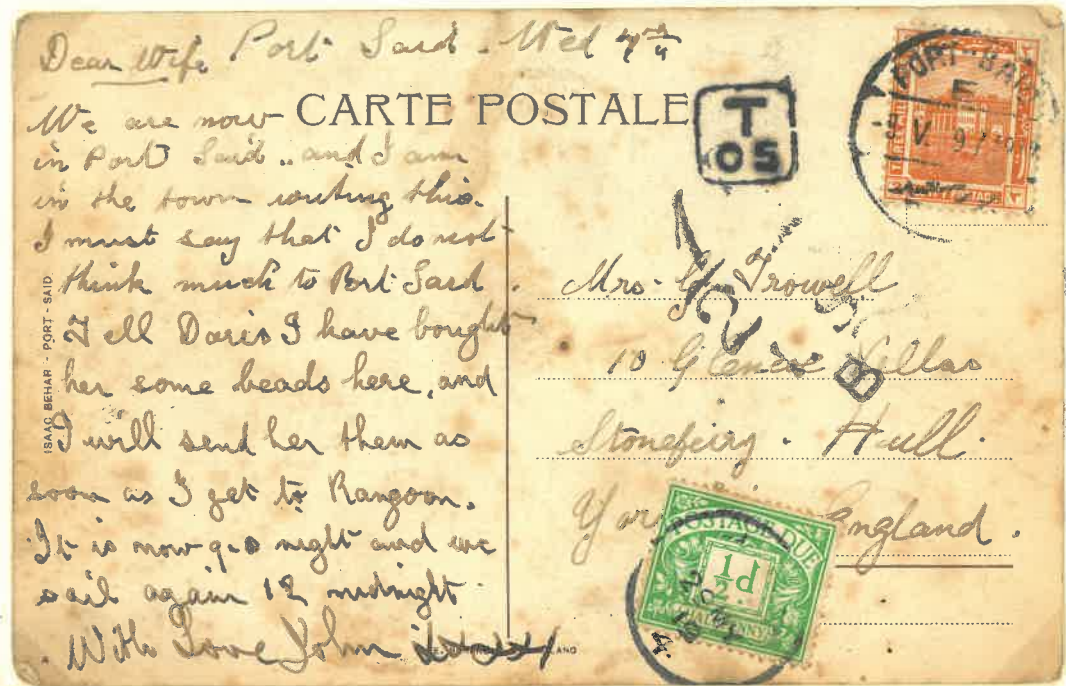 Dear Wife Port Said. Wed
CARTE POSTALE
We are now
in Port Said .. and I am
in the town writing this.
I must say that I do not
think much to Port Said.
Tell Doris I have bought
her some beads here, and
I will send her them as
soon as I get to Rangoon.
It is now 9.0 night and we
sail again 12 midnight.
With Love John xxxxx
ISAAC BEHAR - PORT - SAID
T
05
PORT-SAID
E
POSTAGE
Mrs. G. Trowell
10 Glencoe Villas
Stoneferry. Hull.
England.
POSTAGE DUE
½d
HALFPENNY